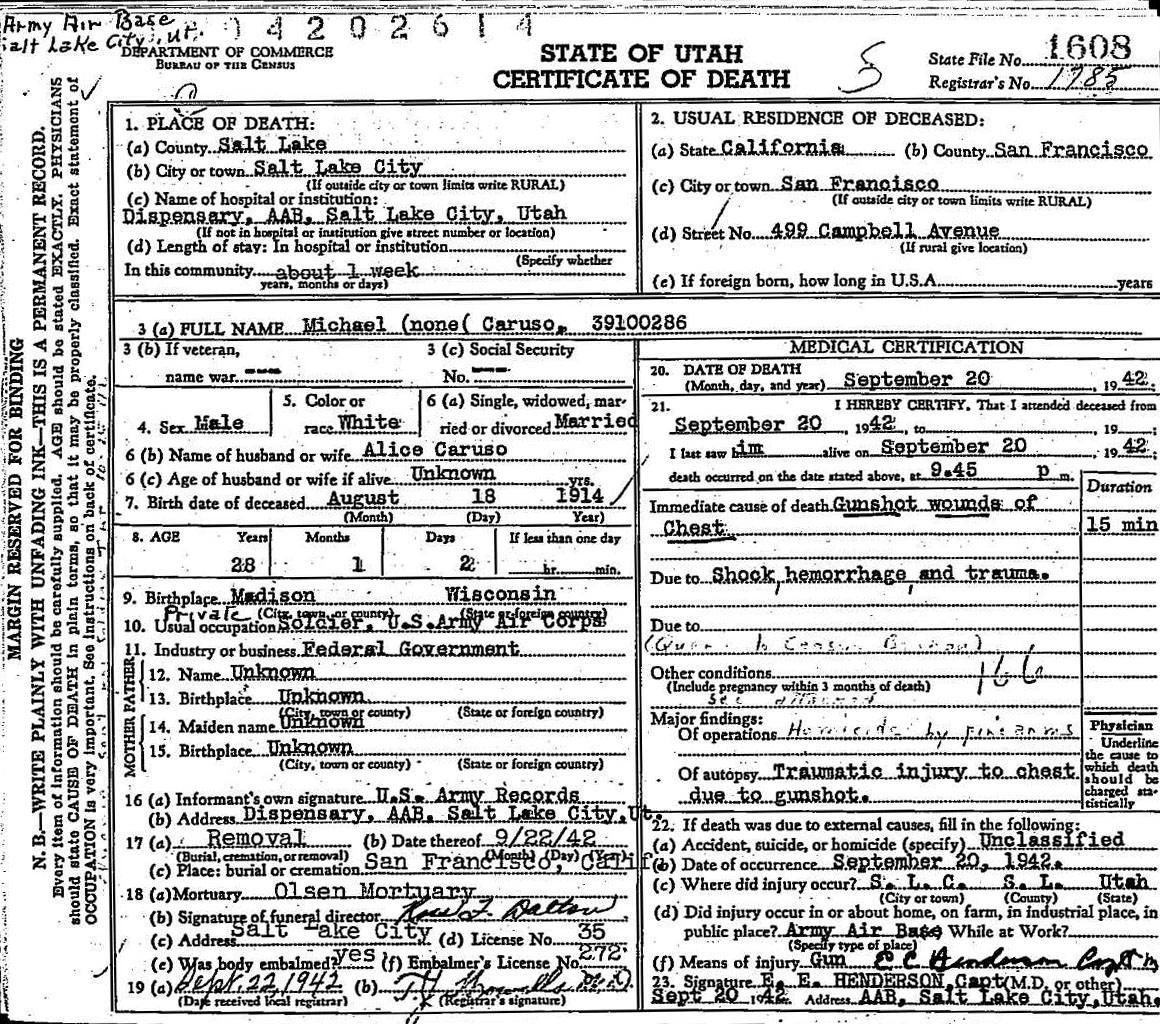 Army Air Base
Salt Lake City, Ut.
04202614
DEPARTMENT OF COMMERCE
BUREAU OF THE CENSUS
STATE OF UTAH
CERTIFICATE OF DEATH
State File No. 1608
Registrar's No. 1985
MARGIN RESERVED FOR BINDING
N. B.—WRITE PLAINLY WITH UNFADING INK—THIS IS A PERMANENT RECORD.
Every item of information should be carefully supplied. AGE should be stated EXACTLY. PHYSICIANS
should state CAUSE OF DEATH in plain terms, so that it may be properly classified. Exact statement of
OCCUPATION is very important. See instructions on back of certificate.
1. PLACE OF DEATH:
(a) County Salt Lake
(b) City or town Salt Lake City
(If outside city or town limits write RURAL)
(c) Name of hospital or institution:
Dispensary, AAB, Salt Lake City, Utah
(If not in hospital or institution give street number or location)
(d) Length of stay: In hospital or institution
(Specify whether
In this community about 1 week
years, months or days)
2. USUAL RESIDENCE OF DECEASED:
(a) State California (b) County San Francisco
(c) City or town San Francisco
(If outside city or town limits write RURAL)
(d) Street No. 499 Campbell Avenue
(If rural give location)
(e) If foreign born, how long in U.S.A. years
3 (a) FULL NAME Michael (none( Caruso, 39100286
3 (b) If veteran, name war ---
3 (c) Social Security No. ---
4. Sex Male
5. Color or race White
6 (a) Single, widowed, married or divorced Married
6 (b) Name of husband or wife Alice Caruso
6 (c) Age of husband or wife if alive Unknown yrs.
7. Birth date of deceased August 18 1914
(Month) (Day) Year)
8. AGE Years Months Days If less than one day
28 1 2 hr. min.
9. Birthplace Madison Wisconsin
(City, town, or county) (State or foreign country)
Private
10. Usual occupation Soldier, U.S.Army Air Corps
11. Industry or business Federal Government
FATHER
12. Name Unknown
13. Birthplace Unknown
(City, town or county) (State or foreign country)
MOTHER
14. Maiden name Unknown
15. Birthplace Unknown
(City, town or county) (State or foreign country)
16 (a) Informant's own signature U.S. Army Records
(b) Address Dispensary, AAB, Salt Lake City, Ut.
17 (a) Removal (b) Date thereof 9/22/42
(Burial, cremation, or removal) (Month) (Day) (Year)
(c) Place: burial or cremation San Francisco, Calif
18 (a) Mortuary Olsen Mortuary
(b) Signature of funeral director Dalton
(c) Address Salt Lake City (d) License No. 35
(e) Was body embalmed? yes (f) Embalmer's License No. 272
19 (a) Sept. 22, 1942 (b)
(Date received local registrar) (Registrar's signature)
MEDICAL CERTIFICATION
20. DATE OF DEATH
(Month, day, and year) September 20, 1942
21. I HEREBY CERTIFY, That I attended deceased from
September 20, 1942, to , 19 ;
I last saw him alive on September 20 1942;
death occurred on the date stated above, at 9.45 p m.
Duration
Immediate cause of death Gunshot wounds of
Chest 15 min
Due to Shock, hemorrhage, and trauma.
Due to
166
Other conditions
(Include pregnancy within 3 months of death)
See
Major findings:
Of operations Homicide by firearms
Of autopsy Traumatic injury to chest
due to gunshot.
Physician
Underline
the cause to
which death
should be
charged sta-
tistically
22. If death was due to external causes, fill in the following:
(a) Accident, suicide, or homicide (specify) Unclassified
(b) Date of occurrence September 20, 1942.
(c) Where did injury occur? S. L. C. S. L. Utah
(City or town) (County) (State)
(d) Did injury occur in or about home, on farm, in industrial place, in
public place? Army Air Base While at Work?
(Specify type of place)
(f) Means of injury Gun E C Henderson Capt
23. Signature E. E. HENDERSON, Capt (M.D. or other)
Sept 20 1942 Address AAB, Salt Lake City, Utah.